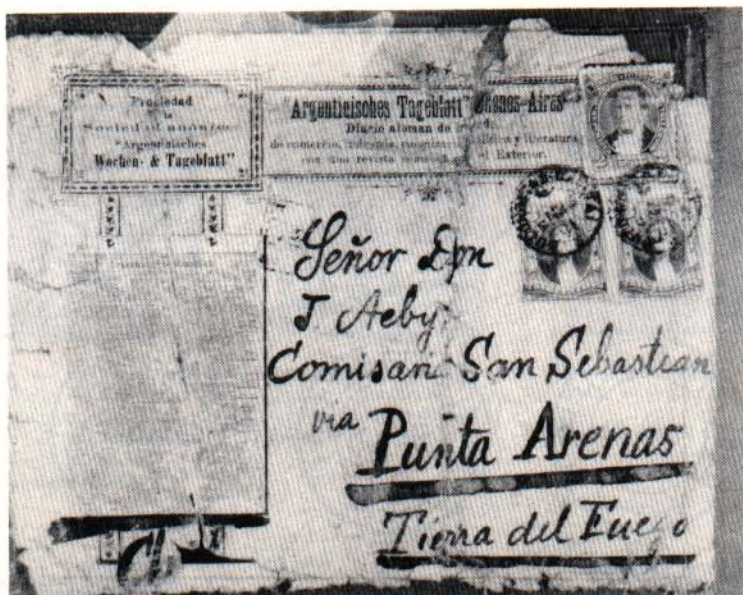 Propiedad
de
Sociedad anónima
"Argentinisches
Wochen- & Tageblatt"
"Argentinisches Tageblatt" Buenos-Aires
Diario aleman de
de comercio, y literatura,
con una revista el Exterior.
Señor Don
J. Aeby
Comisario San Sebastian
via
Punta Arenas
Tierra del Fuego